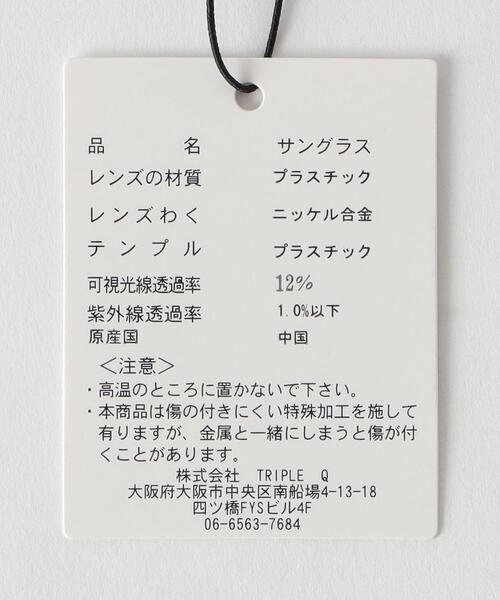 品名 サングラス
レンズの材質 プラスチック
レンズわく ニッケル合金
テンプル プラスチック
可視光線透過率 12%
紫外線透過率 1.0%以下
原産国 中国
＜注意＞
・高温のところに置かないで下さい。
・本商品は傷の付きにくい特殊加工を施して
有りますが、金属と一緒にしまうと傷が付
くことがあります。
株式会社 TRIPLE Q
大阪府大阪市中央区南船場4-13-18
四ツ橋FYSビル4F
06-6563-7684